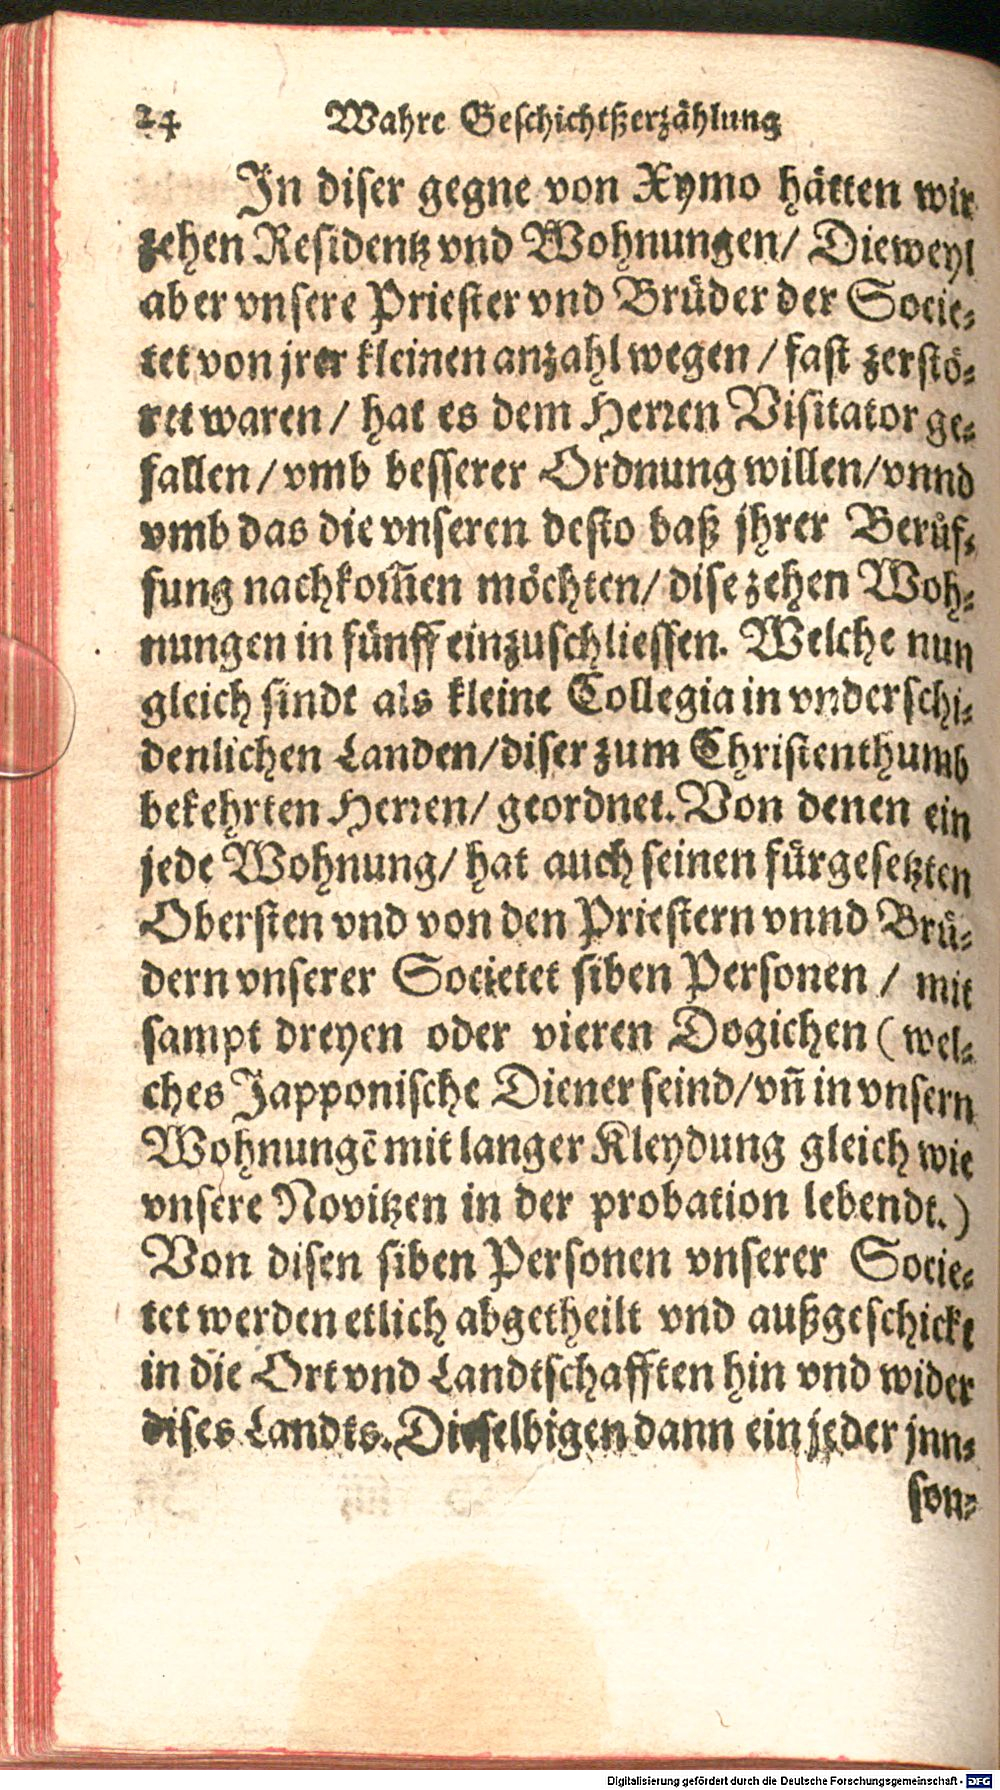 24 Wahre Geschichtßerzählung
In diser gegne von Xymo hätten wir
zehen Residentz vnd Wohnungen/ Dieweyl
aber vnsere Priester vnd Brüder der Socie-
tet von jrer kleinen anzahl wegen / fast zerstö-
ret waren / hat es dem Herren Visitator ge-
fallen / vmb besserer Ordnung willen/ vnnd
vmb das die vnseren desto baß jhrer Berůf-
fung nachkom̃en möchten/ dise zehen Woh-
nungen in fünff einzuschliessen. Welche nun
gleich sindt als kleine Collegia in vnderschi-
denlichen Landen/ diser zum Christenthumb
bekehrten Herren/ geordnet. Von denen ein
jede Wohnung/ hat auch seinen fürgesetzten
Obersten vnd von den Priestern vnnd Brü-
dern vnserer Societet siben Personen / mit
sampt dreyen oder vieren Dogichen ( wel-
ches Japponische Diener seind/ vñ in vnsern
Wohnungē mit langer Kleydung gleich wie
vnsere Novitzen in der probation lebendt.)
Von disen siben Personen vnserer Socie-
tet werden etlich abgetheilt vnd außgeschickt
in die Ort vnd Landtschafften hin vnd wider
dises Landts. Dieselbigen dann ein jeder jnn-
son-
Digitalisierung gefördert durch die Deutsche Forschungsgemeinschaft - DFG